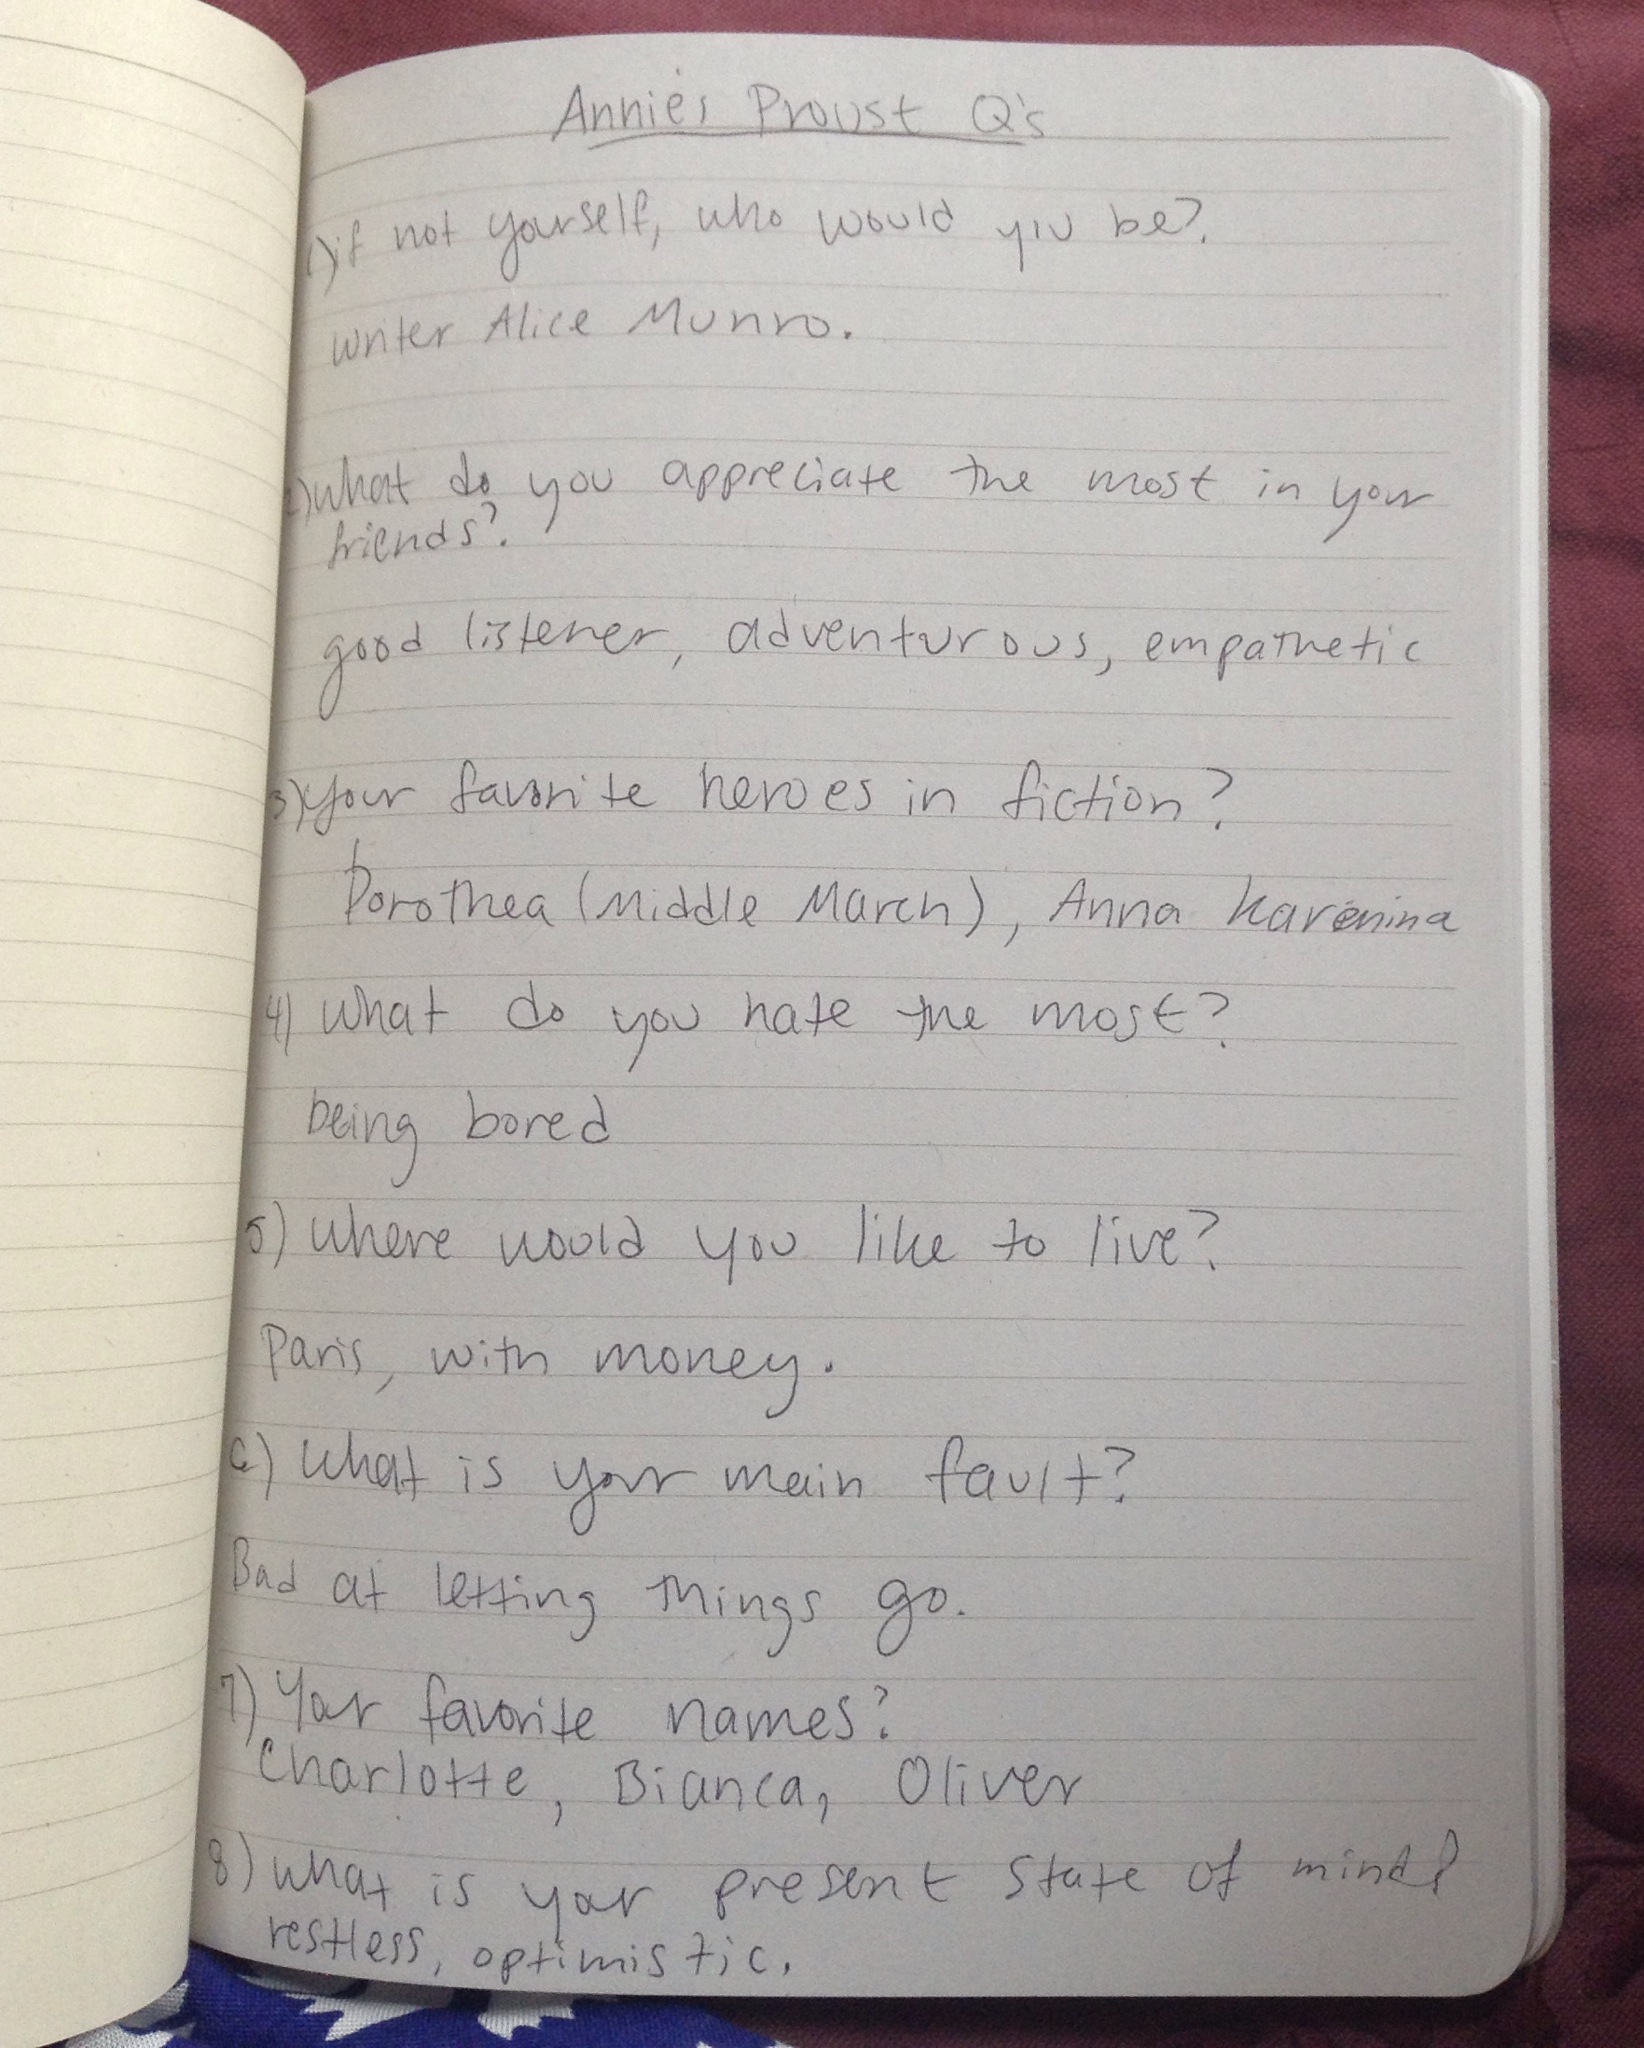 Annie's Proust Q's
1) if not yourself, who would you be?
writer Alice Munro.
2) what do you appreciate the most in your
friends?
good listener, adventurous, empathetic
3) Your favorite heroes in fiction?
Dorothea (Middle March), Anna Karenina
4) What do you hate the most?
being bored
5) Where would you like to live?
Paris, with money.
6) What is your main fault?
Bad at letting things go.
7) Your favorite names?
Charlotte, Bianca, Oliver
8) What is your present state of mind?
restless, optimistic.